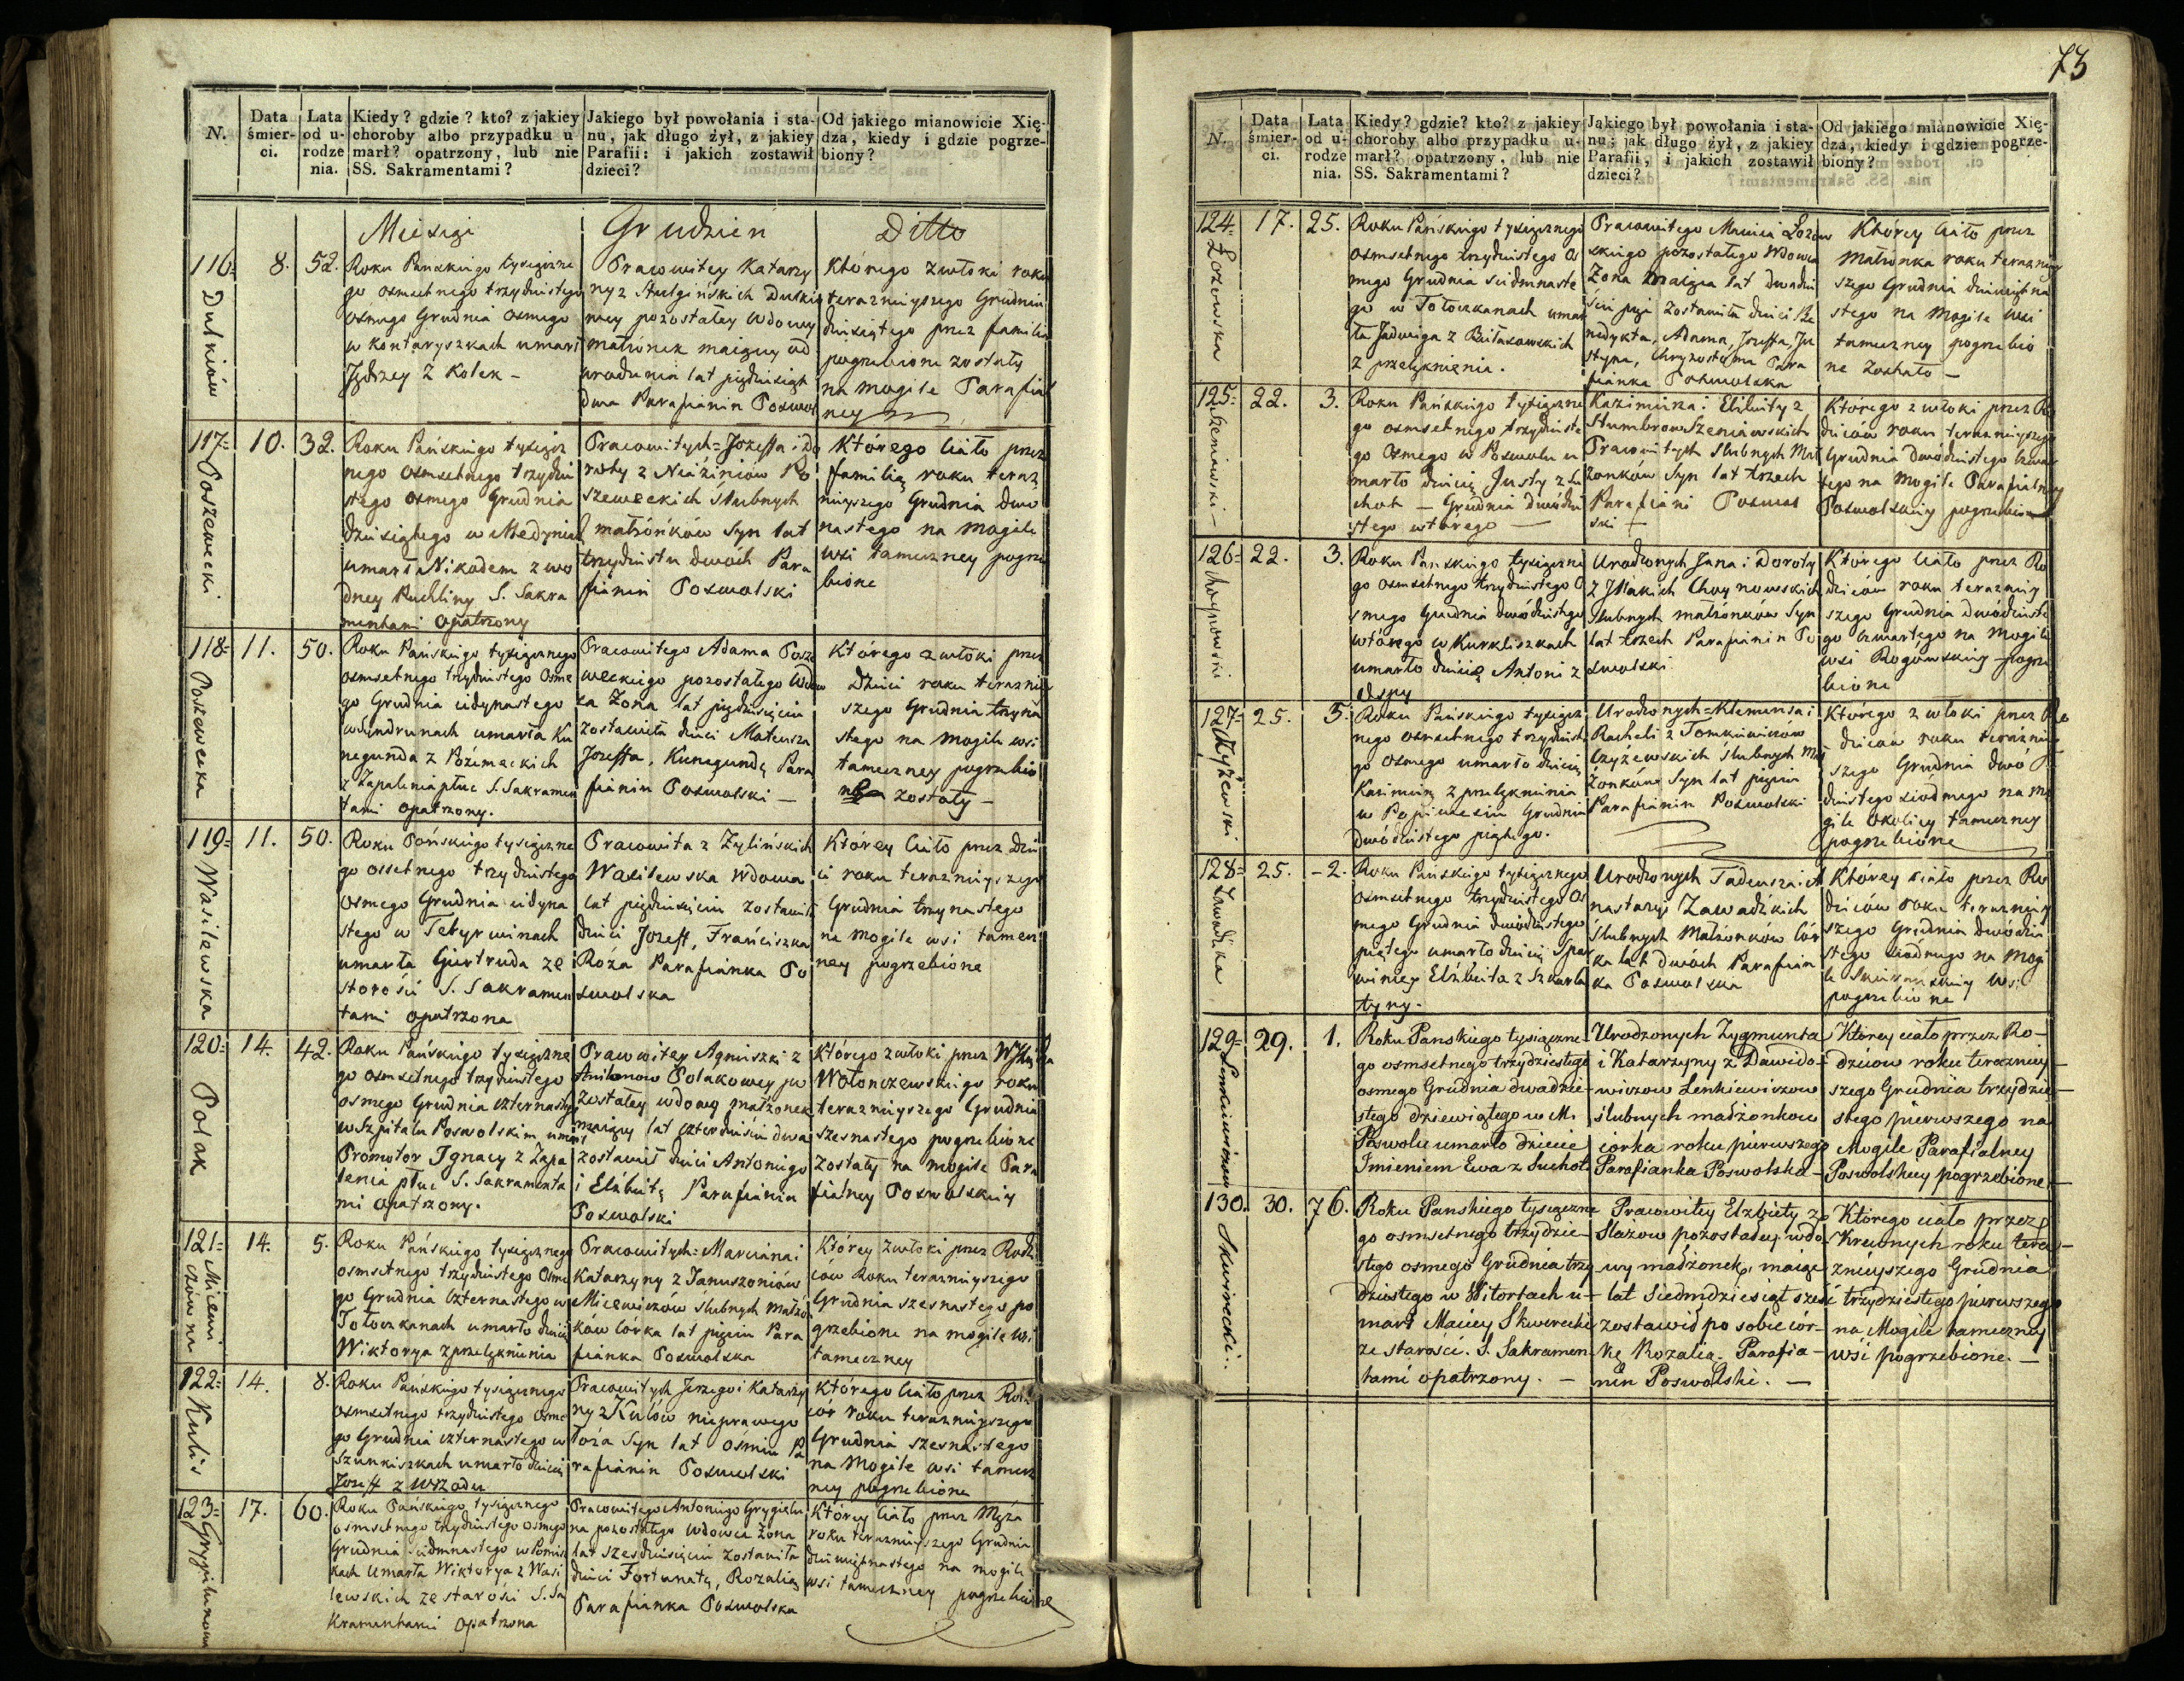 N.
Data śmier- ci.
Lata od u- rodze nia.
Kiedy? gdzie? kto? z jakiey
choroby albo przypadku u-
marł? opatrzony, lub nie
SS. Sakramentami?
Jakiego był powołania i sta-
nu, jak długo żył, z jakiey
Parafii: i jakich zostawił
dzieci?
Od jakiego mianowicie Xię-
dza, kiedy i gdzie pogrze-
biony?
Miesiąi Grudzień Ditto
116 8. 52.
Roku Panskiego tysiączne
go osmsetnego trzydziestego
osmego Grudnia osmego
w Kontaryszkach umarł
Jędrzey z Kolek -
Pracowitey Katarzy
ny z
ney pozostałey wdowy
małżonek maiący od
urodzenia lat pięćdziesiąt
dwa Parafianin Poswol
Którego zwłoki roku
teraznieyszego Grudnia
dziesiątego przez familią
pogrzebione zostały
na mogile Parafial
ney
117 10. 32. Poszewecki
Roku Pańskiego tysiącz
nego osmsetnego trzydzie
stego osmego Grudnia
dziesiątego w
umarł Nikodem z wo
dney Puchliny S. Sakra
mentami opatrzony
Pracowitych Jozeffa i Do
roty z Po
szeweckich Slubnych
małżonków Syn lat
trzydziestu dwóch Para
fianin Poswolski
Którego Ciało przez
familią roku teraz
nieyszego Grudnia dwu
nastego na mogile
wsi tameczney pogrze
bione
118 11. 50. Poszewecka
Roku Pańskiego tysiącznego
osmsetnego trzydziestego Osme
go Grudnia iedynastego
umarła Ku
negunda z
z Zapalenia płuc S. Sakramen
tami opatrzony.
Pracowitego Adama Posze
weckiego pozostałego Wdow
ca Zona lat pięćdziesięciu
zostawiła dzieci Mateusza
Jozeffa, Kunegundę Para
fianin Poswolski -
Którego zwłoki przez
Dzieci roku teraznie
szego Grudnia trzyna
stego na mogile wsi
tameczney pogrzebio
zostały -
119 11. 50. Wasilewska
Roku Pańskiego tysiączne
go ossetnego trzydziestego
Osmego Grudnia iidyna
stego w Tetyrwinach
umarła Giertruda ze
starości S. Sakramen
tami opatrzona
Pracowita z Zylińskich
Wasilewska Wdowa
lat pięćdziesięciu zostawiła
dzieci Jozeff, Franciszka
Roza Parafianka Po
swolska
Którey Ciało przez Dzie
ci roku teraznieyszego
Grudnia trzynastego
na mogile wsi tamecz
ney pogrzebione
120 14. 42. Polak
Roku Pańskiego tysiączne
go osmsetnego trzydziestego
osmego Grudnia czternastego
w Szpitalu Poswolskim umarł
Promotor Ignacy z Zapa
lenia płuc S. Sakramenta
mi opatrzony.
Pracowitey Agnieszki z
Polakowey po
zostałey wdowy małżonek
maiący lat czterdzieści dwa
zostawił dzieci Antoniego
i Elżbietę Parafianin
Poswolski
Którego zwłoki przez
Wołonczewskiego roku
teraznieyszego Grudnia
szesnastego pogrzebione
zostały na mogile Para
fialney Poswolskiey
121 14. 5.
Roku Pańskiego tysiącznego
osmsetnego trzydziestego Osme
go Grudnia Czternastego w
Tołoczkanach umarło dziecię
Wiktorya z przelęknienia
Pracowitych Marciana i
Katarzyny z Januszoniów
Micewiczów Slubnych Małżon
ków Córka lat pięciu Para
fianka Poswolska
Którey zwłoki przez Rodzi
ców Roku teraznieyszego
Grudnia szesnastego po
grzebione na mogile wsi
tameczney
122 14. 8. Kulis
Roku Pańskiego tysiącznego
osmsetnego trzydziestego osme
go Grudnia czternastego w
umarło dziecię
Jozeff z wrzodu
Pracowitych Jerzego i Katarzy
ny z Kulów nieprawego
łoża Syn lat ośmiu Pa
rafianin Poswolski
Którego Ciało przez Rodzi
ców roku teraznieyszego
Grudnia szesnastego
na Mogile wsi tamecz
ney pogrzebione
123 17. 60.
Roku Pańskiego tysiącznego
osmsetnego trzydziestego osmego
Grudnia siedmnastego w
umarła Wiktorya z Wasi
lewskich ze starości S. Sa
kramentami opatrzona
Pracowitego Antoniego
na pozostałego wdowca Zona
lat szesćdziesięciu zostawiła
dzieci Fortunatę, Rozalią
Parafianka Poswolska
Którey Ciało przez Męża
roku teraznieyszego Grudnia
dziewiętnastego na mogile
wsi tameczney pogrzebione
73
N.
Data śmier- ci.
Lata od u- rodze nia.
Kiedy? gdzie? kto? z jakiey
choroby albo przypadku u-
marł? opatrzony, lub nie
SS. Sakramentami?
Jakiego był powołania i sta-
nu; jak długo żył, z jakiey
Parafii, i jakich zostawił
dzieci?
Od jakiego mianowicie Xię-
dza, kiedy i gdzie pogrze-
biony?
124 17. 25. Łozowska
Roku Pańskiego tysiącznego
osmsetnego trzydziestego Os
mego Grudnia siedmnaste
go w Tołoczkanach umar
ła Jadwiga z
z przelęknienia.
Pracowitego Łozow
skiego pozostałego Wdowca
Zona maiąca lat dwadzie
ścia pięć zostawiła dzieci Be
nedykta, Adama, Jozeffa, Ju
styna, Chryzostoma Para
fianka Poswolska
Którey Ciało przez
Małżonka roku teraznie
szego Grudnia dziewiętna
stego na Mogile wsi
tameczney pogrzebio
ne zostało -
125 22. 3.
Roku Pańskiego tysiączne
go osmsetnego trzydzieste
go Osmego w Poswolu u
marło dziecię Justy z Su
chot - Grudnia dwódzie
stego wtorego -
Kazimierza i Elżbiety z
Stumbrow
Pracowitych Slubnych Mał
żonków Syn lat trzech
Parafiani Poswol
ski
Którego zwłoki przez Ro
dziców roku teraznieyszego
Grudnia dwódziestego czwar
tego na mogile Parafialney
Poswolskiey pogrzebione
126 22. 3.
Roku Panskiego tysiączne
go osmsetnego trzydziestego O
smego Grudnia dwódziestego
wtórego w Kurkliszkach
umarło dziecię Antoni z
Ospy
Urodzonych Jana i Doroty
z Choynowskich
Slubnych małżonków Syn
lat trzech Parafianin Po
swolski
Którego Ciało przez Ro
dziców roku teraznie
szego Grudnia dwódzieste
go czwartego na mogile
wsi Rogowskiey pogrze
bione
127 25. 5. Czyżewski
Roku Pańskiego tysiącz
nego osmsetnego trzydzieste
go osmego umarło dziecię
Kazimierz z przelęknienia
w Grudnia
dwódziestego piątego.
Urodzonych Klemensa i
Racheli z Tomkiewiczów
Czyżewskich Slubnych Mał
żonków Syn lat pięciu
Parafianin Poswolski
Którego zwłoki przez Ro
dziców roku teraznie
szego Grudnia dwó
dziestego siodmego na mo
gile okolicy tameczney
pogrzebione
128 25. -2. Zawadzka
Roku Pańskiego tysiącznego
osmsetnego trzydziestego Os
mego Grudnia dwódziestego
piątego umarło dziecię
Elżbieta z Szkarla
tyny.
Urodzonych Tadeusza i A
nastazyi Zawadzkich
Slubnych Małżonków Cór
ka lat dwóch Parafian
ka Poswolska
Którey Ciało przez Ro
dziców roku teraznie
szego Grudnia dwódzie
stego siódmego na Mogi
le wsi
pogrzebione
129 29. 1.
Roku Panskiego tysiączne-
go osmsetnego trzydziestego
osmego Grudnia dwadzie-
stego dziewiątego w M.
Poswolu umarło dziecie
Imieniem Ewa z Suchot
Urodzonych Zygmunta
i Katarzyny z Dawido-
wiczow Lenkiewiczow
ślubnych małżonkow
corka roku pierwszego
Parafianka Poswolska -
Ktorey ciało przez Ro-
dzicow roku terazniey-
szego Grudnia trzydzie-
stego pierwszego na
Mogile Parafialney
Poswolskiey pogrzebione.
130. 30. 76. Skwirecki.
Roku Panskiego tysiączne
go osmsetnego trzydzie-
stego osmego Grudnia trzy
dziestego w Witortach u-
marł Maciey Skwirecki
ze starości. S. Sakramen-
tami opatrzony. -
Pracowitey Elżbiety z
Slazow pozostałey wdo-
wy małżonek, maiąc
lat siedmdziesiąt sześć
zostawił po sobie cor-
kę Rozalią. Parafia-
nin Poswolski. -
Którego ciało przez
Krewnych roku tera-
znieyszego Grudnia
trzydziestego pierwszego
na Mogile tameczney
wsi pogrzebione. -